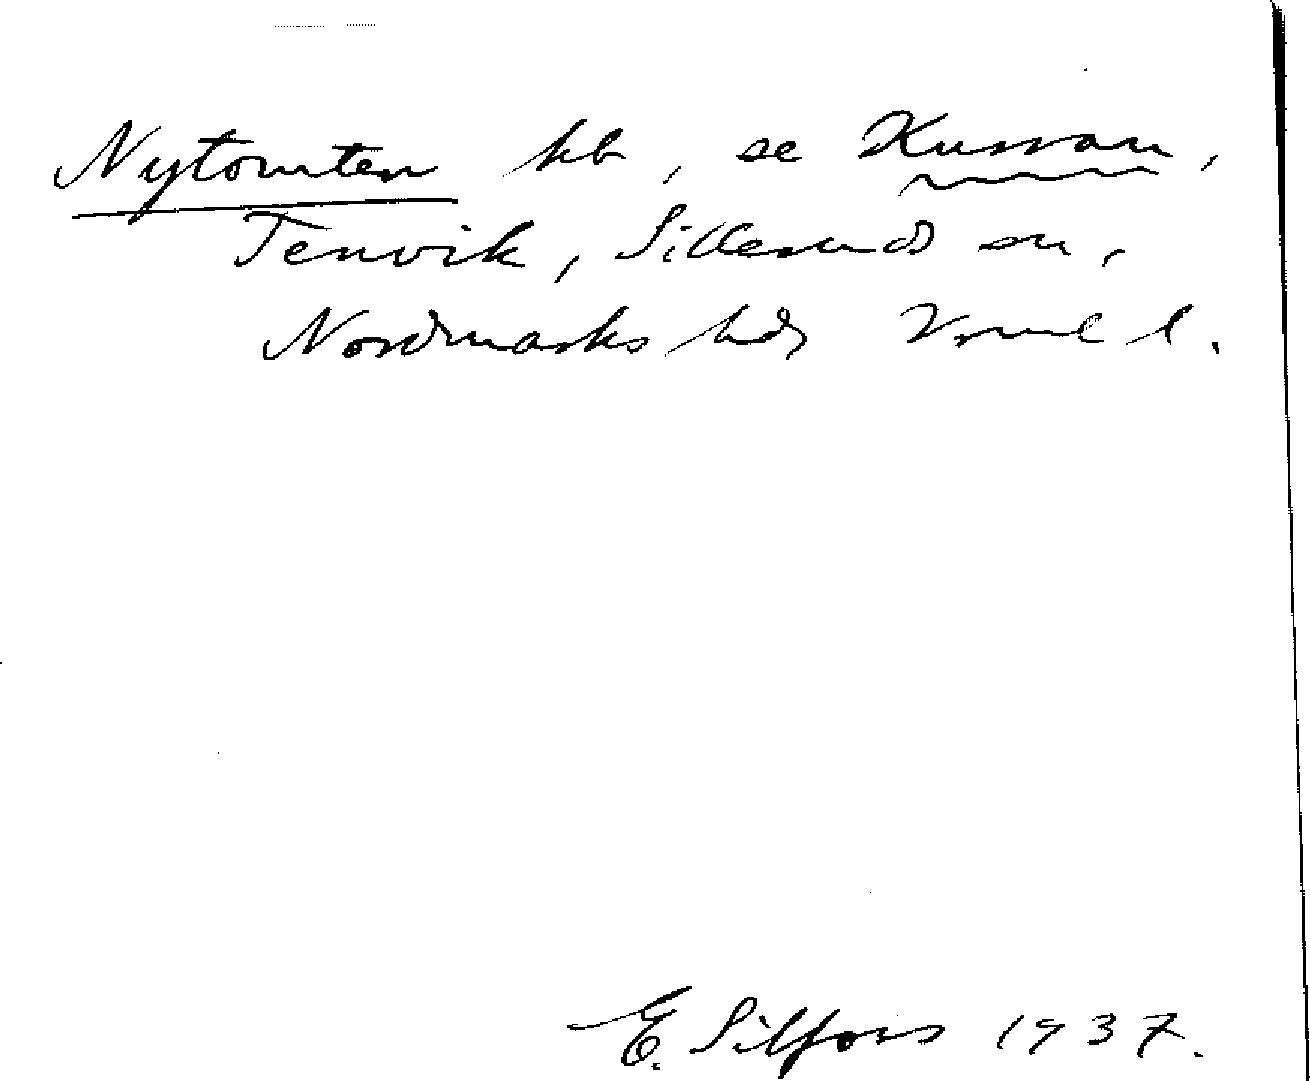 Nytomten hb, se Kussan,
Tenvik, Silleruds sn,
Nordmarks hd, Vrml l.
E. Silfors 1937.